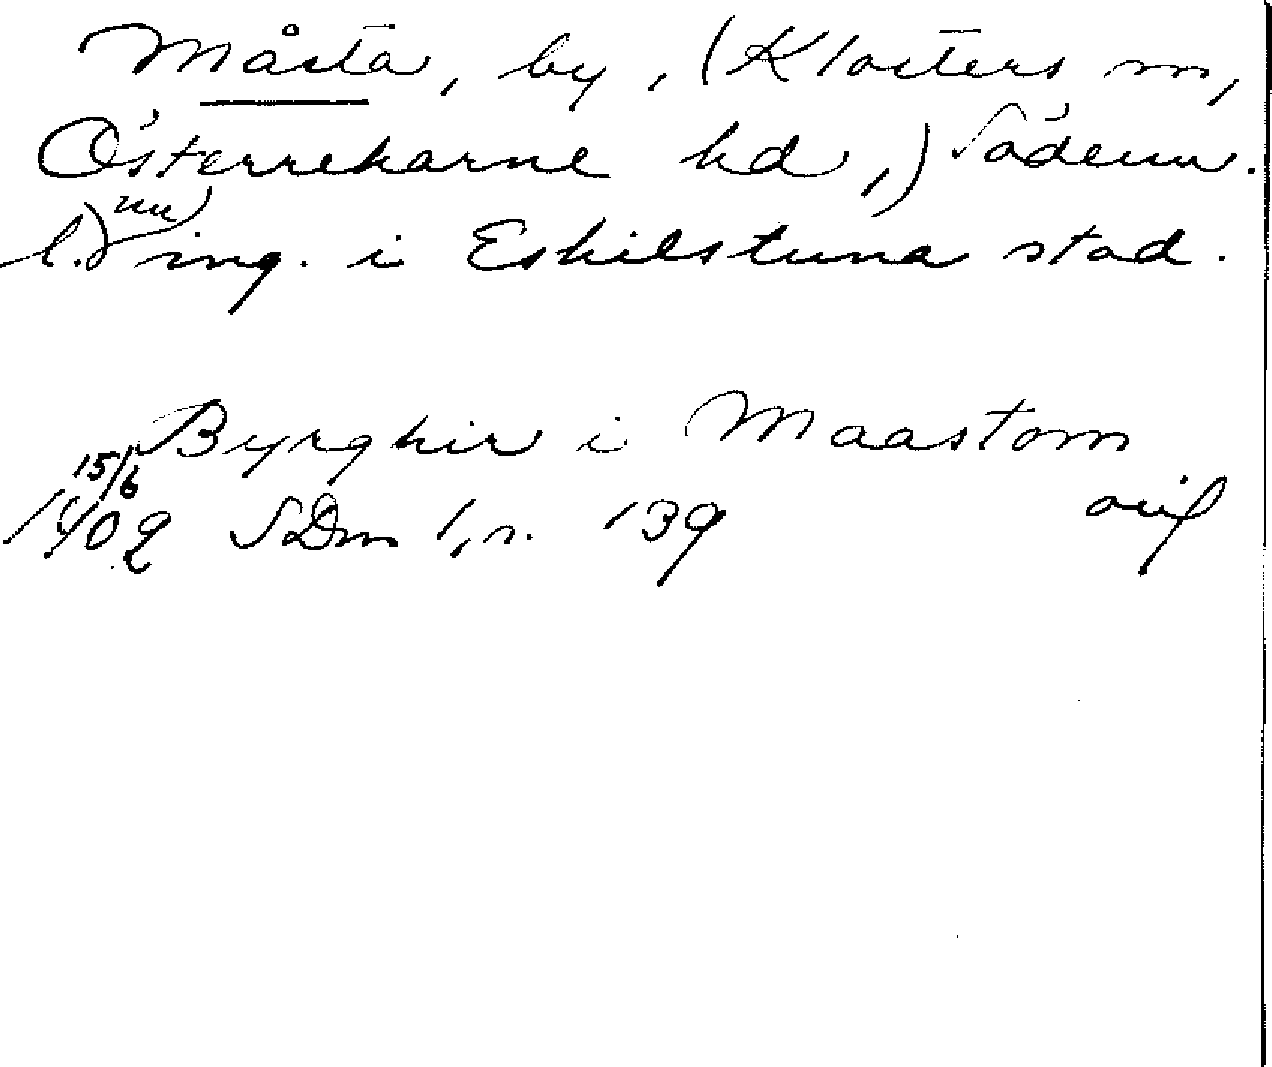 Måsta, by, (Klosters sn,
Österrekarne hd,) Söderm.
l.) nu ing. i Eskilstuna stad.
Byrghir i Maastom
15/6
1402 SDns 1, s. 139 orig